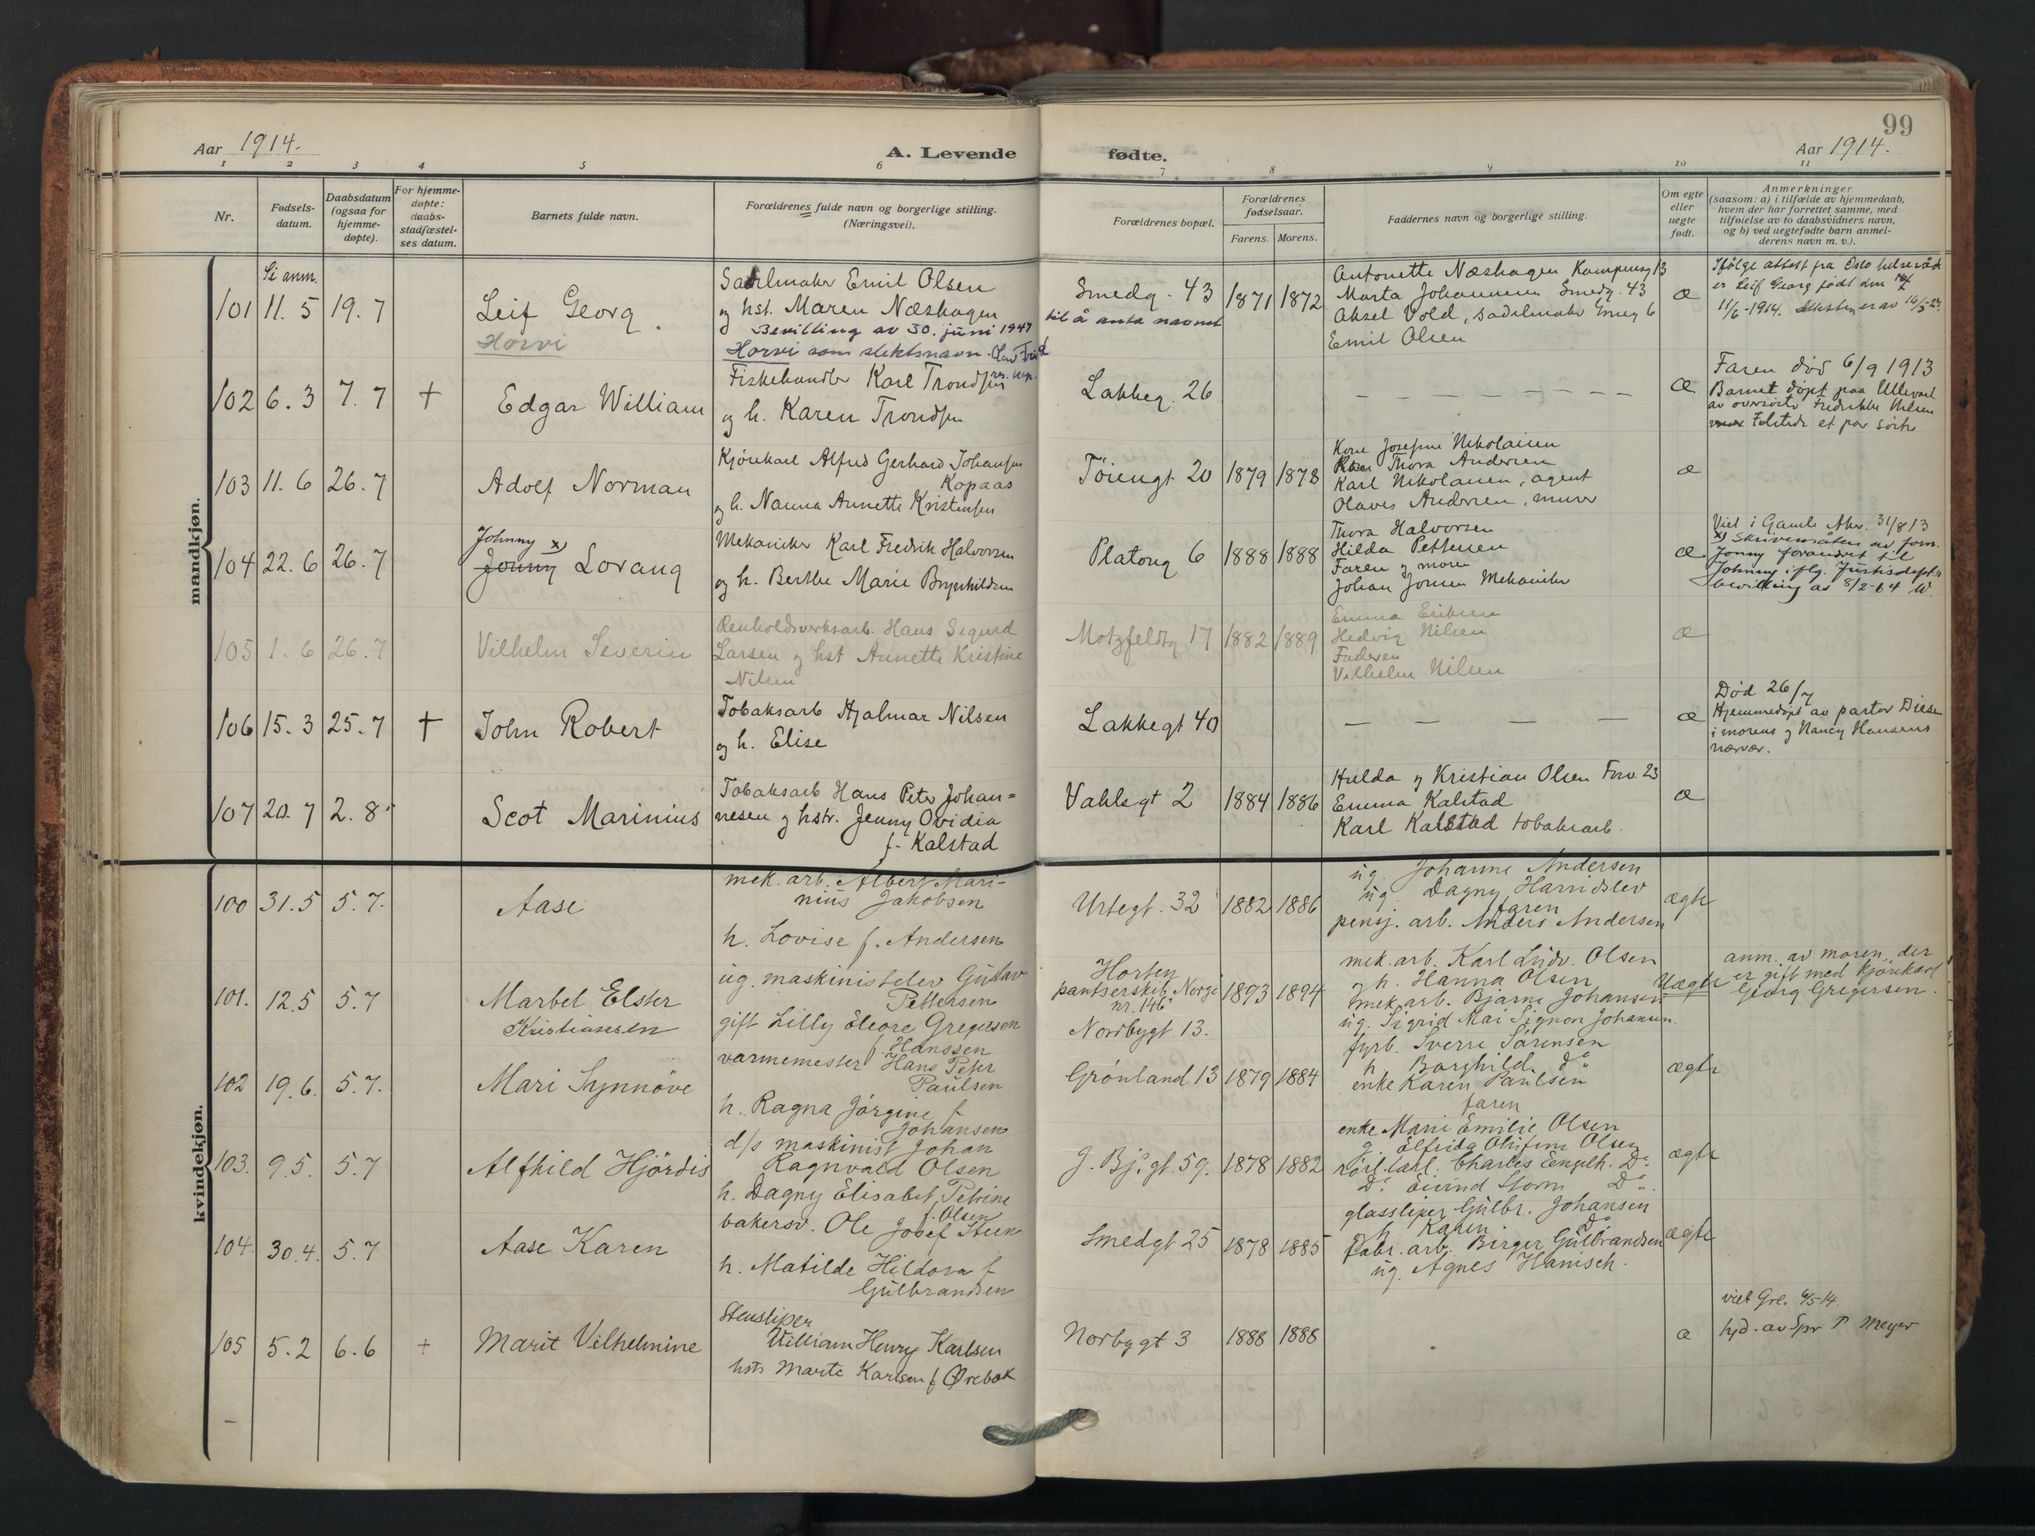 99
Aar 1914.
A. Levende fødte.
Aar 1914.
1 2 3 4 5 6 7 8 9 10 11
Nr.
Fødsels-
datum.
Daabsdatum
(ogsaa for
hjemme-
døpte).
For hjemme-
døpte:
daabs-
stadfæstel-
ses datum.
Barnets fulde navn.
Forældrenes fulde navn og borgerlige stilling.
(Næringsvei).
Forældrenes bopæl.
Forældrenes
fødselsaar.
Farens. Morens.
Faddernes navn og borgerlige stilling.
Om egte
eller
uegte
født.
Anmerkninger
(saasom: a) i tilfælde av hjemmedaab,
hvem der har forrettet samme, med
tilføielse av to daabsvidners navn,
og b) ved uegtefødte barn anmel-
derens navn m. v.).
mandkjøn.
Se anm.
101 11.5 19.7
Leif Georg
Horvi
Sadelmaker Emil Olsen
og hst. Maren Næshagen
Bevilling av 30. juni 1947
til å anta navnet
Horvi som slektsnavn.
Smedg. 43
1871 1872
Antonette Næshagen Kampensg 13
Marta Johannesen Smedg. 43
Aksel Vold, sadelmaker Smeg 6
Emil Olsen
æ
Ifølge attest fra Oslo helseråd
er Leif Georg født den
11/6-1914.
102 6.3 7.7 +
Edgar William
Fiskehandler Karl Trondsen
og h. Karen Trondsen
Lakkeg. 26
— — — — — — —
æ
Faren død 6/9 1913
Barnet døpt paa Ullevaal
av oversøster Fredrikke Nilsen
Tilstede et par søstre
103 11.6 26.7
Adolf Norman
Kjørekarl Alfred Gerhard Johansen
Kopaas
og h. Nanna Annette Kristensen
Tøiengt. 20
1879 1878
Kone Josefine Nikolaisen
Thora Andersen
Karl Nikolaisen, agent
Olaves Andersen, murer
æ
104 22.6 26.7
Johnny x)
Jonny Lorang
Mekaniker Karl Fredrik Halvorsen
og h. Berthe Marie Brynhildsen
Platoug. 6
1888 1888
Thora Halvorsen
Hilda Pettersen
Faren og moren
Johan Jonsen Mekaniker
æ
Viet i Gamle Aker 31/8 13
x) Skrivemåten av forn.
Jonny forandret til
Johnny iflg. Justisdept.s
bevilling av 8/2-64 W.
105 1.6 26.7
Vilhelm Severin
Renholdsverksarb. Hans Sigurd
Larsen og hst Annette Kristine
Nilsen
Motzfeldtg 17
1882 1889
Emma Eriksen
Hedvig Nilsen
Faderen
Vilhelm Nilsen
æ
106 15.3 25.7 +
John Robert
Tobaksarb Hjalmar Nilsen
og h. Elise
Lakkegt 40
— — — — —
æ
Død 26/7
Hjemmedøpt av pastor Diesen
i morens og Nancy Hansens
nærvær.
107 20.7 2.8
Scot Marinius
Tobaksarb Hans Peter Johan=
nesen og hstr. Jenny Ovidia
f. Kalstad
Vahlsgt 2
1884 1886
Hulda og Kristian Olsen Forv. 23
Emma Kalstad
Karl Kalstad tobaksarb.
æ
kvindekjøn.
100 31.5 5.7.
Aase
mek. arb. Albert Mari-
nius Jakobsen
h. Lovise f. Andersen
Urtegt. 32
1882 1886
ug. Johanne Andersen
ug. Dagny Harridslev
faren
pensj. arb. Anders Andersen
ægte
101. 12.5 5.7
Marbel Elster
Kristiansen
ug. maskinistelev Gustav
Pettersen
gift Lilly Eleore Gregersen
f. Hanssen
Horten
pantserskib. Norge
nr. 146
Nordbygt 13.
1893 1894
mek. arb. Karl Ludv. Olsen
h. Hanna Olsen
mek. arb. Bjarne Johansen
ug. Sigrid Mai Signon Johansen.
Uægte
anm. av moren, der
er gift med kjørekarl
Georg Gregersen.
102 19.6. 5.7.
Mari Synnøve
varmemester Hans Peter
Paulsen
h. Ragna Jørgine f
Johansen
Grønland 13
1879 1884
fyrb. Sverre Sørensen
h Borghild. do
enke Karen Paulsen
faren
ægte
103. 9.5. 5.7
Alfhild Hjørdis
d/s maskinist Johan
Ragnvald Olsen
h. Dagny Elisabet Petrine
f. Olsen
J. Bj. gt. 59.
1878 1882
enke Marie Emilie Olsen
g. Elfrida Olufine Olsen
Charles Engelh. Do
Do Eivind Storm Do
ægte
104. 30.4. 5.7
Aase Karen
bakersv. Ole Josef Steen
h. Matilde Hildora f
Gulbrandsen
Smedgt 25
1878 1885
glassliper Gulbr. Johansen
h Karen Do
fabr. arb. Birger Gulbrandsen
ug. Agnes Hanisch.
ægte
105 5.2 6.6 +
Marit Vilhelmine
Stensliper
William Henry Karlsen
hstr Marte Karlsen f Ørebæk
Norbygt 3
1888 1888
æ
viet Grl. 6/5-14.
hjd. av Spr P Meyer